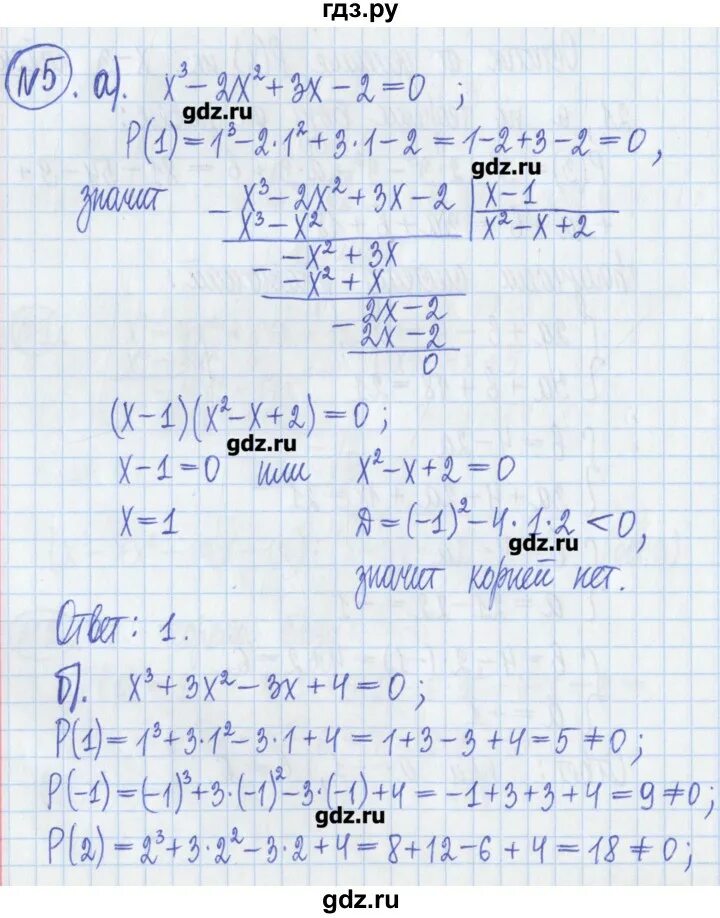 гдз.ру
№5. а). x³ – 2x² + 3x – 2 = 0 ;
gdz.ru
P(1) = 1³ – 2·1² + 3·1 – 2 = 1 – 2 + 3 – 2 = 0,
gdz.ru
значит – x³ – 2x² + 3x – 2 | x – 1
x³ – x² | x² – x + 2
– –x² + 3x
–x² + x
– 2x – 2
2x – 2
0
(x – 1)(x² – x + 2) = 0 ;
gdz.ru
x – 1 = 0 или x² – x + 2 = 0
x = 1 Д = (–1)² – 4·1·2 < 0,
gdz.ru
значит корней нет.
Ответ: 1.
б). x³ + 3x² – 3x + 4 = 0 ;
P(1) = 1³ + 3·1² – 3·1 + 4 = 1 + 3 – 3 + 4 = 5 ≠ 0 ;
P(–1) = (–1)³ + 3·(–1)² – 3·(–1) + 4 = –1 + 3 + 3 + 4 = 9 ≠ 0 ;
gdz.ru
P(2) = 2³ + 3·2² – 3·2 + 4 = 8 + 12 – 6 + 4 = 18 ≠ 0 ;
gdz.ru